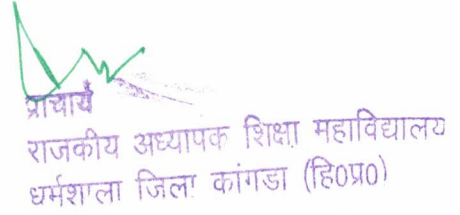 प्राचार्य
राजकीय अध्यापक शिक्षा महाविद्यालय
धर्मशाला जिला कांगडा (हि0प्र0)